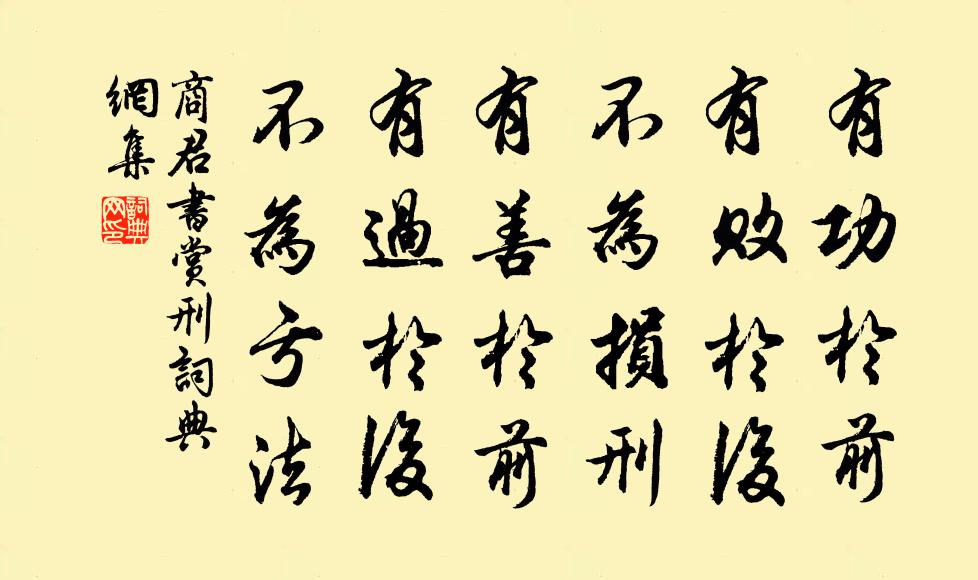 有功於前
有敗於後
不為損刑
有善於前
有過於後
不為亏法
商君書賞刑詞典
網集
詞典
网印